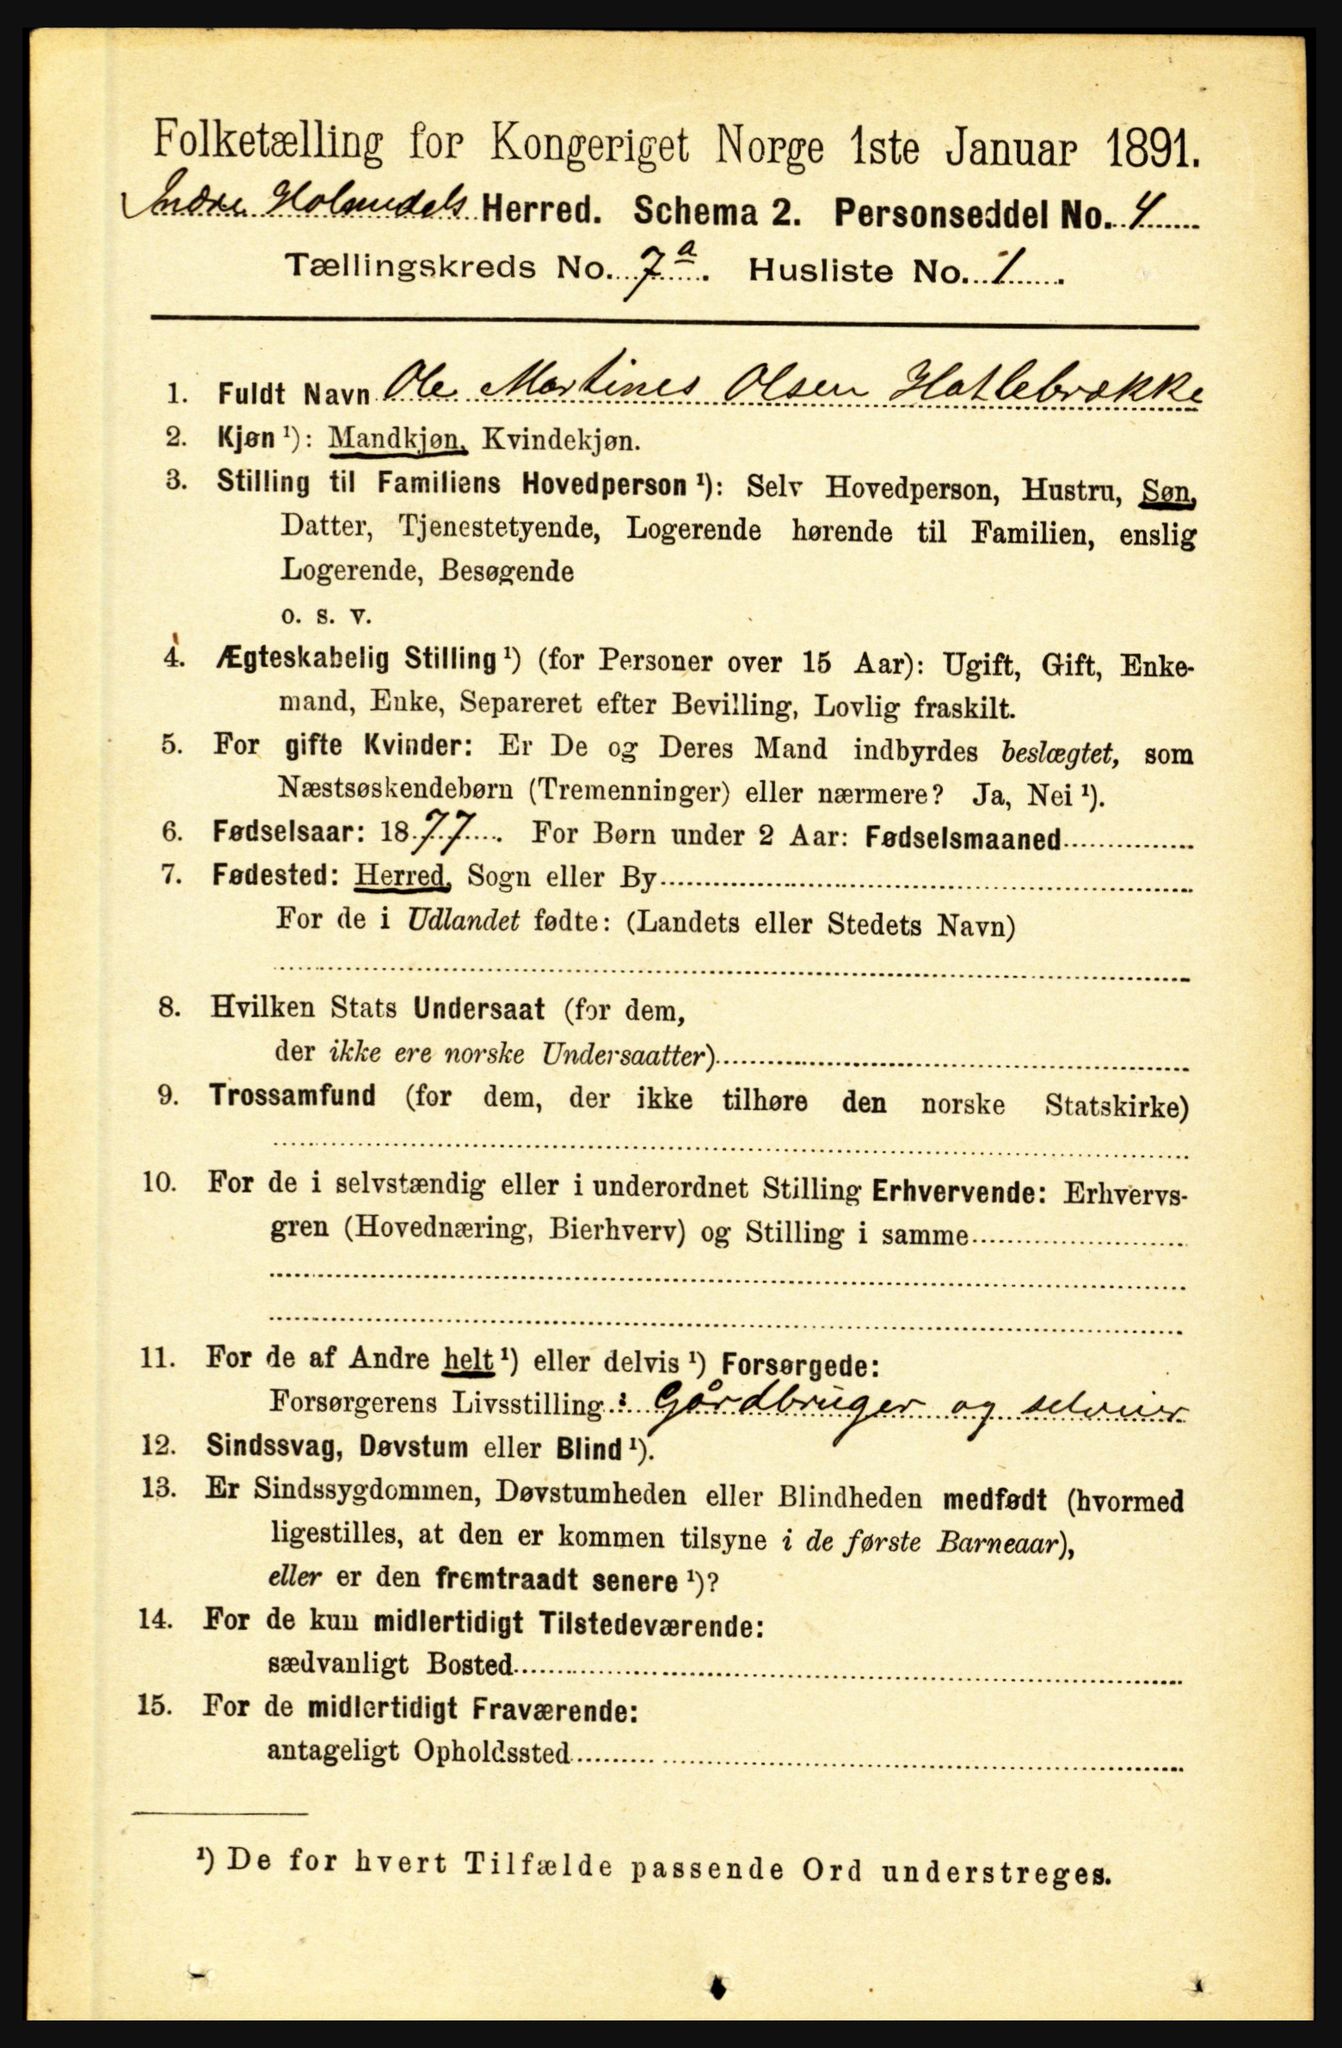 Folketælling for Kongeriget Norge 1ste Januar 1891.
Indre Holmedals Herred. Schema 2. Personseddel No. 4
Tællingskreds No. 7a. Husliste No. 1.
1. Fuldt Navn Ole Martines Olsen Hatlebrække
2. Kjøn ¹): Mandkjøn, Kvindekjøn.
3. Stilling til Familiens Hovedperson ¹): Selv Hovedperson, Hustru, Søn,
Datter, Tjenestetyende, Logerende hørende til Familien, enslig
Logerende, Besøgende
o. s. v.
4. Ægteskabelig Stilling ¹) (for Personer over 15 Aar): Ugift, Gift, Enke-
mand, Enke, Separeret efter Bevilling, Lovlig fraskilt.
5. For gifte Kvinder: Er De og Deres Mand indbyrdes beslægtet, som
Næstsøskendebørn (Tremenninger) eller nærmere? Ja, Nei ¹).
6. Fødselsaar: 1877. For Børn under 2 Aar: Fødselsmaaned
7. Fødested: Herred, Sogn eller By
For de i Udlandet fødte: (Landets eller Stedets Navn)
8. Hvilken Stats Undersaat (for dem,
der ikke ere norske Undersaatter)
9. Trossamfund (for dem, der ikke tilhøre den norske Statskirke)
10. For de i selvstændig eller i underordnet Stilling Erhvervende: Erhvervs-
gren (Hovednæring, Bierhverv) og Stilling i samme
11. For de af Andre helt ¹) eller delvis ¹) Forsørgede:
Forsørgerens Livsstilling: Gårdbruger og selveier
12. Sindssvag, Døvstum eller Blind ¹).
13. Er Sindssygdommen, Døvstumheden eller Blindheden medfødt (hvormed
ligestilles, at den er kommen tilsyne i de første Barneaar),
eller er den fremtraadt senere ¹)?
14. For de kun midlertidigt Tilstedeværende:
sædvanligt Bosted
15. For de midlertidigt Fraværende:
antageligt Opholdssted
¹) De for hvert Tilfælde passende Ord understreges.